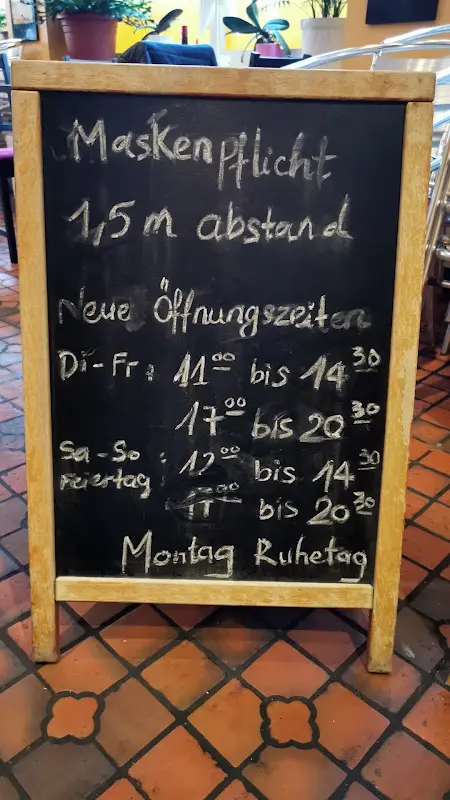 Maskenpflicht
1,5 m abstand
Neue Öffnungszeiten
Di-Fr: 11⁰⁰ bis 14³⁰
17⁰⁰ bis 20³⁰
Sa-So : 12⁰⁰ bis 14³⁰
Feiertag 17⁰⁰ bis 20³⁰
Montag Ruhetag